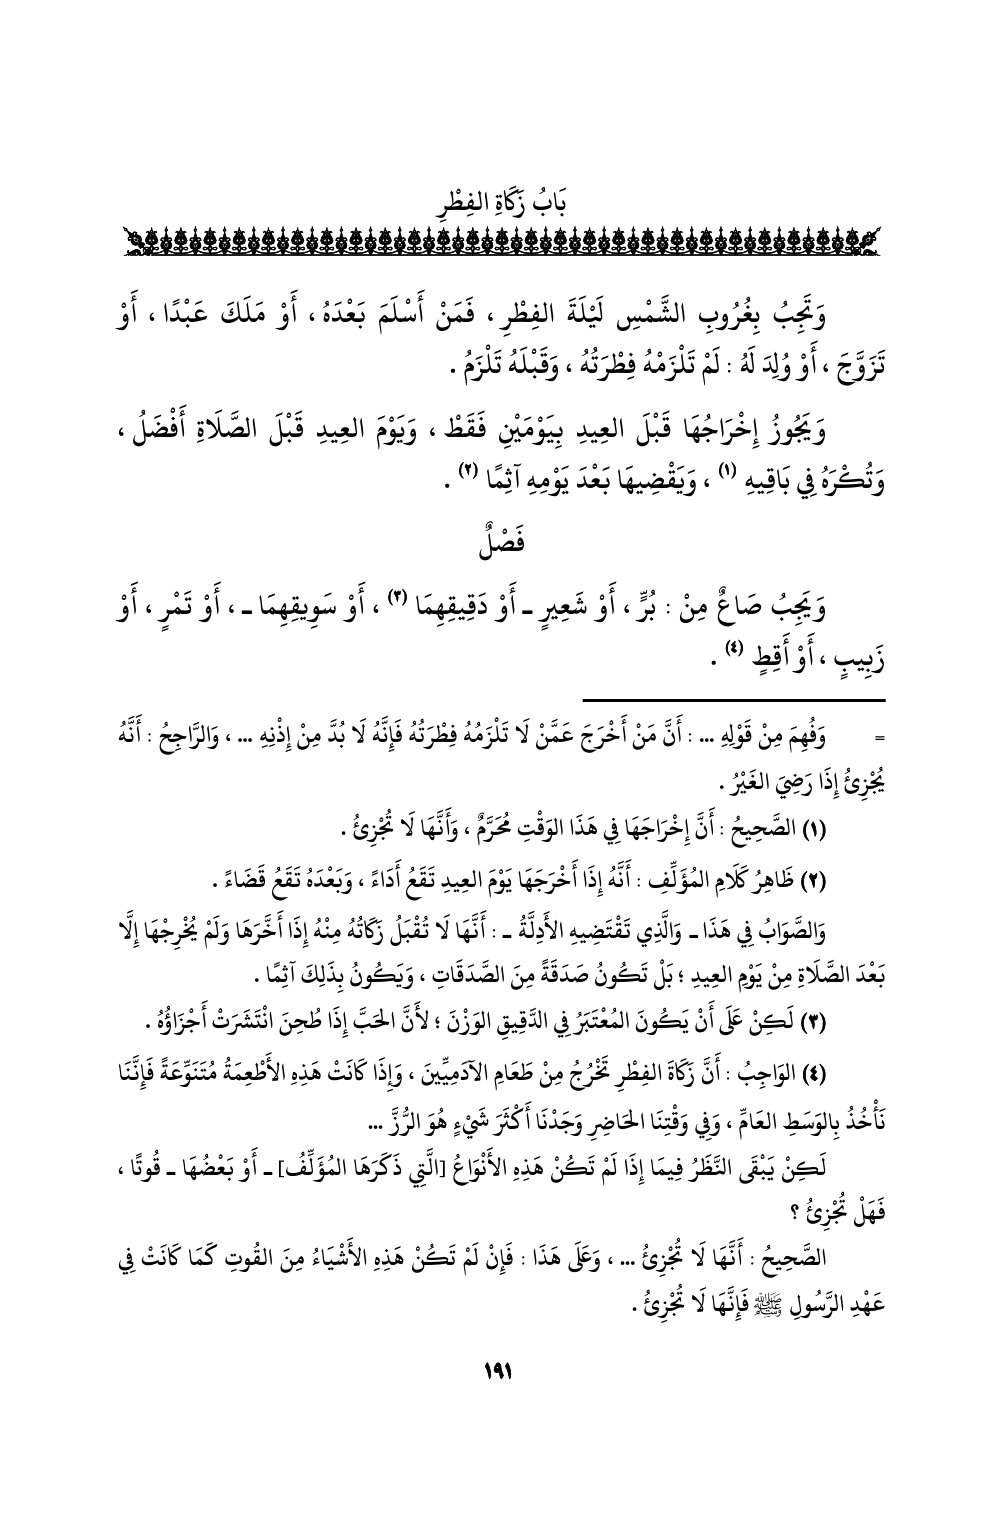 بَابُ زَكَاةِ الفِطْرِ
وَتَجِبُ بِغُرُوبِ الشَّمْسِ لَيْلَةَ الفِطْرِ ، فَمَنْ أَسْلَمَ بَعْدَهُ ، أَوْ مَلَكَ عَبْدًا ، أَوْ
تَزَوَّجَ ، أَوْ وُلِدَ لَهُ : لَمْ تَلْزَمْهُ فِطْرَتُهُ ، وَقَبْلَهُ تَلْزَمُ .
وَيَجُوزُ إِخْرَاجُهَا قَبْلَ العِيدِ بِيَوْمَيْنِ فَقَطْ ، وَيَوْمَ العِيدِ قَبْلَ الصَّلَاةِ أَفْضَلُ ،
وَتُكْرَهُ فِي بَاقِيهِ (١) ، وَيَقْضِيهَا بَعْدَ يَوْمِهِ آثِمًا (٢) .
فَصْلٌ
وَيَجِبُ صَاعٌ مِنْ : بُرٍّ ، أَوْ شَعِيرٍ ـ أَوْ دَقِيقِهِمَا (٣) ، أَوْ سَوِيقِهِمَا ـ ، أَوْ تَمْرٍ ، أَوْ
زَبِيبٍ ، أَوْ أَقِطٍ (٤) .
= وَفُهِمَ مِنْ قَوْلِهِ ... : أَنَّ مَنْ أَخْرَجَ عَمَّنْ لَا تَلْزَمُهُ فِطْرَتُهُ فَإِنَّهُ لَا بُدَّ مِنْ إِذْنِهِ ... ، وَالرَّاجِحُ : أَنَّهُ
يُجْزِئُ إِذَا رَضِيَ الغَيْرُ .
(١) الصَّحِيحُ : أَنَّ إِخْرَاجَهَا فِي هَذَا الوَقْتِ مُحَرَّمٌ ، وَأَنَّهَا لَا تُجْزِئُ .
(٢) ظَاهِرُ كَلَامِ المُؤَلِّفِ : أَنَّهُ إِذَا أَخْرَجَهَا يَوْمَ العِيدِ تَقَعُ أَدَاءً ، وَبَعْدَهُ تَقَعُ قَضَاءً .
وَالصَّوَابُ فِي هَذَا ـ وَالَّذِي تَقْتَضِيهِ الأَدِلَّةُ ـ : أَنَّهَا لَا تُقْبَلُ زَكَاتُهُ مِنْهُ إِذَا أَخَّرَهَا وَلَمْ يُخْرِجْهَا إِلَّا
بَعْدَ الصَّلَاةِ مِنْ يَوْمِ العِيدِ ؛ بَلْ تَكُونُ صَدَقَةً مِنَ الصَّدَقَاتِ ، وَيَكُونُ بِذَلِكَ آثِمًا .
(٣) لَكِنْ عَلَى أَنْ يَكُونَ المُعْتَبَرُ فِي الدَّقِيقِ الوَزْنَ ؛ لأَنَّ الحَبَّ إِذَا طُحِنَ انْتَشَرَتْ أَجْزَاؤُهُ .
(٤) الوَاجِبُ : أَنَّ زَكَاةَ الفِطْرِ تَخْرُجُ مِنْ طَعَامِ الآدَمِيِّينَ ، وَإِذَا كَانَتْ هَذِهِ الأَطْعِمَةُ مُتَنَوِّعَةً فَإِنَّنَا
نَأْخُذُ بِالوَسَطِ العَامِّ ، وَفِي وَقْتِنَا الحَاضِرِ وَجَدْنَا أَكْثَرَ شَيْءٍ هُوَ الرُّزَّ ...
لَكِنْ يَبْقَى النَّظَرُ فِيمَا إِذَا لَمْ تَكُنْ هَذِهِ الأَنْوَاعُ [الَّتِي ذَكَرَهَا المُؤَلِّفُ] ـ أَوْ بَعْضُهَا ـ قُوتًا ،
فَهَلْ تُجْزِئُ ؟
الصَّحِيحُ : أَنَّهَا لَا تُجْزِئُ ... ، وَعَلَى هَذَا : فَإِنْ لَمْ تَكُنْ هَذِهِ الأَشْيَاءُ مِنَ القُوتِ كَمَا كَانَتْ فِي
عَهْدِ الرَّسُولِ ﷺ فَإِنَّهَا لَا تُجْزِئُ .
١٩١